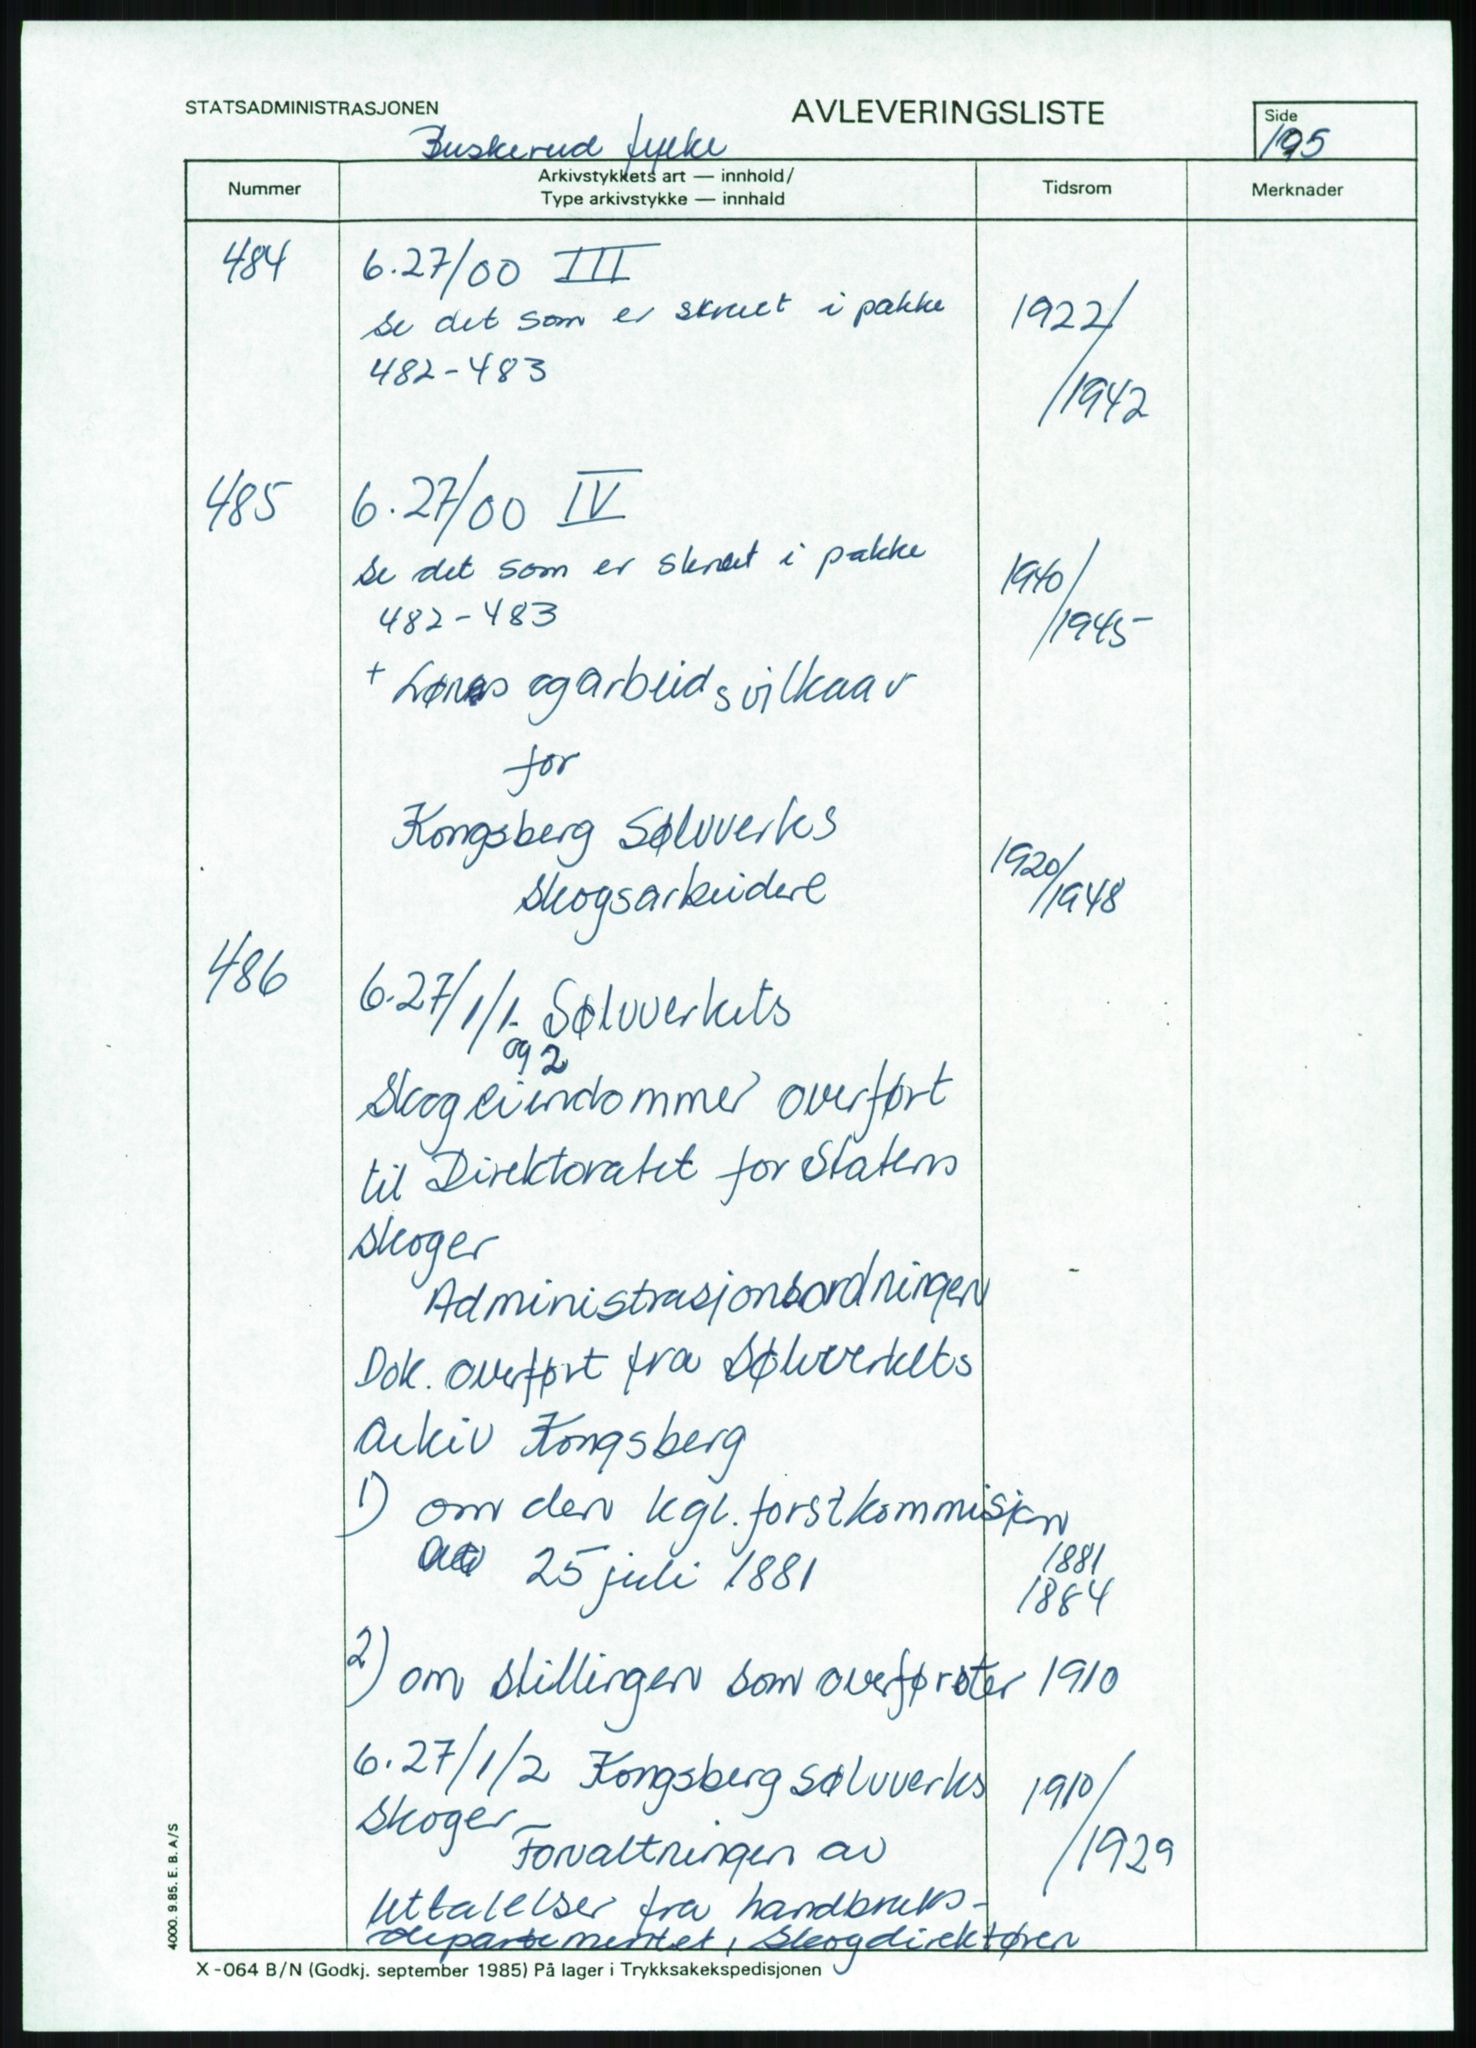 STATSADMINISTRASJONEN
AVLEVERINGSLISTE
Side
195
Buskerud fylke
Nummer
Arkivstykkets art — innhold/
Type arkivstykke — innhald
Tidsrom
Merknader
484
6.27/00 III
Se det som er skrevet i pakke
482-483
1922/
/1942
485
6.27/00 IV
Se det som er skrevet i pakke
482-483
1940/
/1945
+ Lønns og arbeidsvilkaar
for
Kongsberg Sølvverks
Skogsarbeidere
1920/
/1948
486
6.27/1/1. Sølvverkets
og 2
Skogeiendommer overført
til Direktoratet for Statens
Skoger
Administrasjonsordningen
Dok. overført fra Sølvverkets
arkiv Kongsberg
1) om den kgl. forstkommisjon
av 25 juli 1881
1881
1884
2) om stillingen som overførster 1910
6.27/1/2 Kongsberg Sølvverks
Skoger
1910/
/1929
Forvaltningen av
Uttalelser fra Landbruks-
departementet, Skogdirektøren
4000. 9.85. E. B. A/S
X-064 B/N (Godkj. september 1985) På lager i Trykksakekspedisjonen